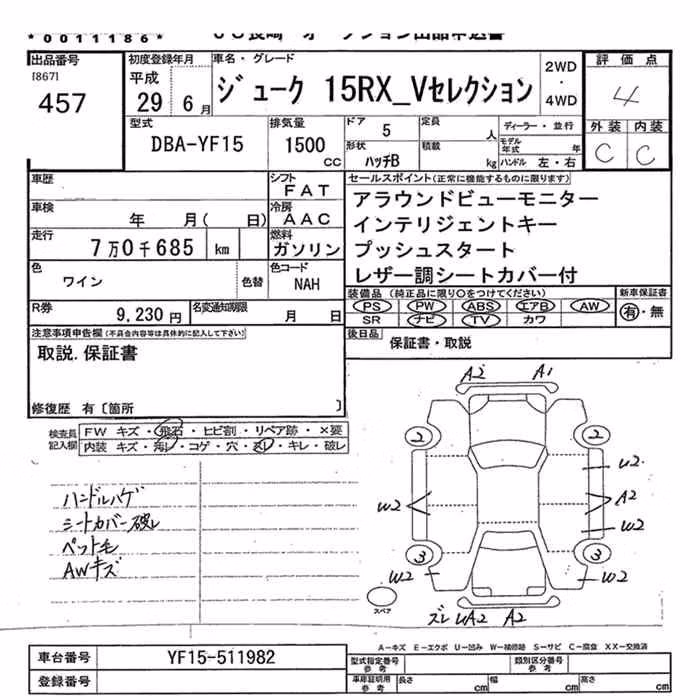 *0011186*
出品番号
[867]
457
初度登録年月
平成
29 6月
車名・グレード
ジューク 15RX_Vセレクション
2WD
・
4WD
評価点
4
外装 内装
C C
型式
DBA-YF15
排気量
1500
CC
ドア 5
形状
ハッチB
定員
人
積載
kg
ディーラー・並行
モデル年式 年
ハンドル 左・右
車歴
シフト
FAT
車検
年 月( 日)
冷房
AAC
走行
7万0千685 km
燃料
ガソリン
色
ワイン
色替
色コード
NAH
R券
9,230円
名変通知期限
月 日
セールスポイント(正常に機能するものに限ります)
アラウンドビューモニター
インテリジェントキー
プッシュスタート
レザー調シートカバー付
装備品(純正品に限り○をつけてください)
PS PW ABS エアB AW
SR ナビ TV カワ
新車保証書
有・無
後日品
保証書・取説
注意事項申告欄(不具合内容等は具体的に記入して下さい)
取説.保証書
修復歴 有〔箇所 〕
検査員
記入欄
FW キズ・飛石・ヒビ割・リペア跡・×要
内装 キズ・汚レ・コゲ・穴・スレ・キレ・破レ
ハンドルハゲ
シートカバー破レ
ペット毛
AWキズ
A2 A1
2 2
W2
A2
W2
W2
3 3
W2 W2
スペア
ズレ UA2 A2
A-キズ E-エクボ U-凹み W-補修跡 S-サビ C-腐食 XX-交換済
車台番号
YF15-511982
登録番号
型式指定番号
参考
類別区分番号
参考
車庫証明用
参考
長さ cm
幅 cm
高さ cm